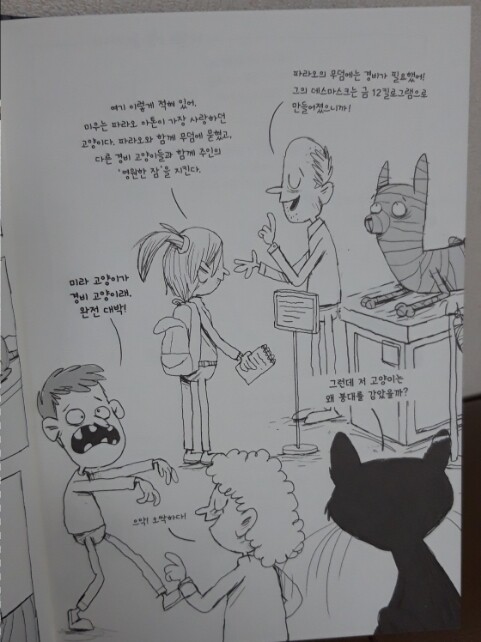 여기 이렇게 적혀 있어.
미우는 파라오 아톤이 가장 사랑하던
고양이다. 파라오와 함께 무덤에 묻혔고,
다른 경비 고양이들과 함께 주인의
‘영원한 잠’을 지킨다.
파라오의 무덤에는 경비가 필요했어!
그의 데스마스크는 금 12킬로그램으로
만들어졌으니까!
미라 고양이가
경비 고양이래.
완전 대박!
그런데 저 고양이는
왜 붕대를 감았을까?
으싹! 오싹하다!